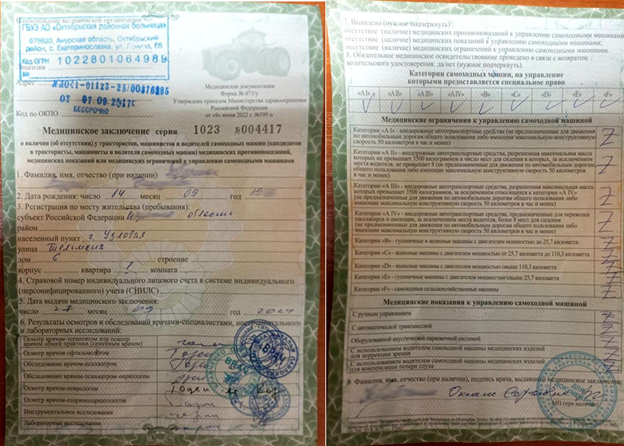 Наименование медицинской организации
ГБУЗ АО «Октябрьская районная больница»
676630, Амурская область, Октябрьский
район, с. Екатеринославка, ул. Ломича, 66
Код ОГРН 1022801064989
Адрес
от 07.09.2017г.
БЕССРОЧНО
Код по ОКПО
Медицинская документация
Форма № 071/у
Утверждена приказом Министерства здравоохранения
Российской Федерации
от «9» июня 2022 г. №395 н
Медицинское заключение серия 1023 № 004417
о наличии (об отсутствии) у трактористов, машинистов и водителей самоходных машин (кандидатов
в трактористы, машинисты и водители самоходных машин) медицинских противопоказаний,
медицинских показаний или медицинских ограничений к управлению самоходными машинами
1. Фамилия, имя, отчество (при наличии)
2. Дата рождения: число 14 месяц 09
3. Регистрация по месту жительства (пребывания):
субъект Российской Федерации области
район
населенный пункт г. Узловая
улица
дом 6 строение
корпус квартира комната
4. Страховой номер индивидуального лицевого счета в системе индивидуального
(персонифицированного) учета (СНИЛС)
5. Дата выдачи медицинского заключения:
число 27 месяц 09 2024
6. Результаты осмотров и обследований врачами-специалистами, инструментального
и лабораторных исследований:
Осмотр врачом-терапевтом или осмотр
врачом общей практики (семейным врачом)
Осмотр врачом-офтальмологом
Обследование врачом-психиатром
Обследование врачом-психиатром-наркологом
Осмотр врачом-неврологом
Осмотр врачом-оториноларингологом
Инструментальное исследование
Лабораторные исследования
7. Выявлено (нужное подчеркнуть):
отсутствие (наличие) медицинских противопоказаний к управлению самоходными машинами
отсутствие (наличие) медицинских показаний к управлению самоходными машинами;
отсутствие (наличие) медицинских ограничений к управлению самоходными машинами
8. Медицинское освидетельствование проведено в связи с возвратом
водительского удостоверения, да/нет (нужное подчеркнуть)
Категории самоходных машин, на управление
которыми предоставляется специальное право
«AI» «AII» «AIII» «AIV» «B» «C» «D» «E» «F»
Медицинские ограничения к управлению самоходной машиной
Категория «A I» - внедорожные автотранспортные средства (не предназначенные для движения
по автомобильным дорогам общего пользования либо имеющие максимальную конструктивную
скорость 50 километров в час и менее)
Категория «A II» - внедорожные автотранспортные средства, разрешенная максимальная масса
которых не превышает 3500 килограммов и число мест для сидения в которых, за исключением места
водителя, не превышает 8 (не предназначенные для движения по автомобильным дорогам
общего пользования либо имеющие максимальную конструктивную скорость 50 километров
в час и менее)
Категория «A III» - внедорожные автотранспортные средства, разрешенная максимальная масса
которых превышает 3500 килограммов, за исключением относящихся к категории «A IV»
(не предназначенные для движения по автомобильным дорогам общего пользования либо
имеющие максимальную конструктивную скорость 50 километров в час и менее)
Категория «A IV» - внедорожные автотранспортные средства, предназначенные для перевозки
пассажиров и имеющие, за исключением места водителя, более 8 мест для сидения
(не предназначенные для движения по автомобильным дорогам общего пользования либо
имеющие максимальную конструктивную скорость 50 километров в час и менее)
Категория «B» - гусеничные и колесные машины с двигателем мощностью до 25,7 киловатта
Категория «C» - колесные машины с двигателем мощностью от 25,7 киловатта до 110,3 киловатта
Категория «D» - колесные машины с двигателем мощностью свыше 110,3 киловатта
Категория «E» - гусеничные машины с двигателем мощностью свыше 25,7 киловатта
Категория «F» - самоходные сельскохозяйственные машины
Медицинские показания к управлению самоходной машиной
С ручным управлением
С автоматической трансмиссией
Оборудованной акустической парковочной системой
С использованием водителем самоходной машины медицинских изделий
для коррекции зрения
С использованием водителем самоходной машины медицинских изделий
для компенсации потери слуха
9. Фамилия, имя, отчество (при наличии), подпись врача, выдавшего медицинское заключение:
МП (при наличии)